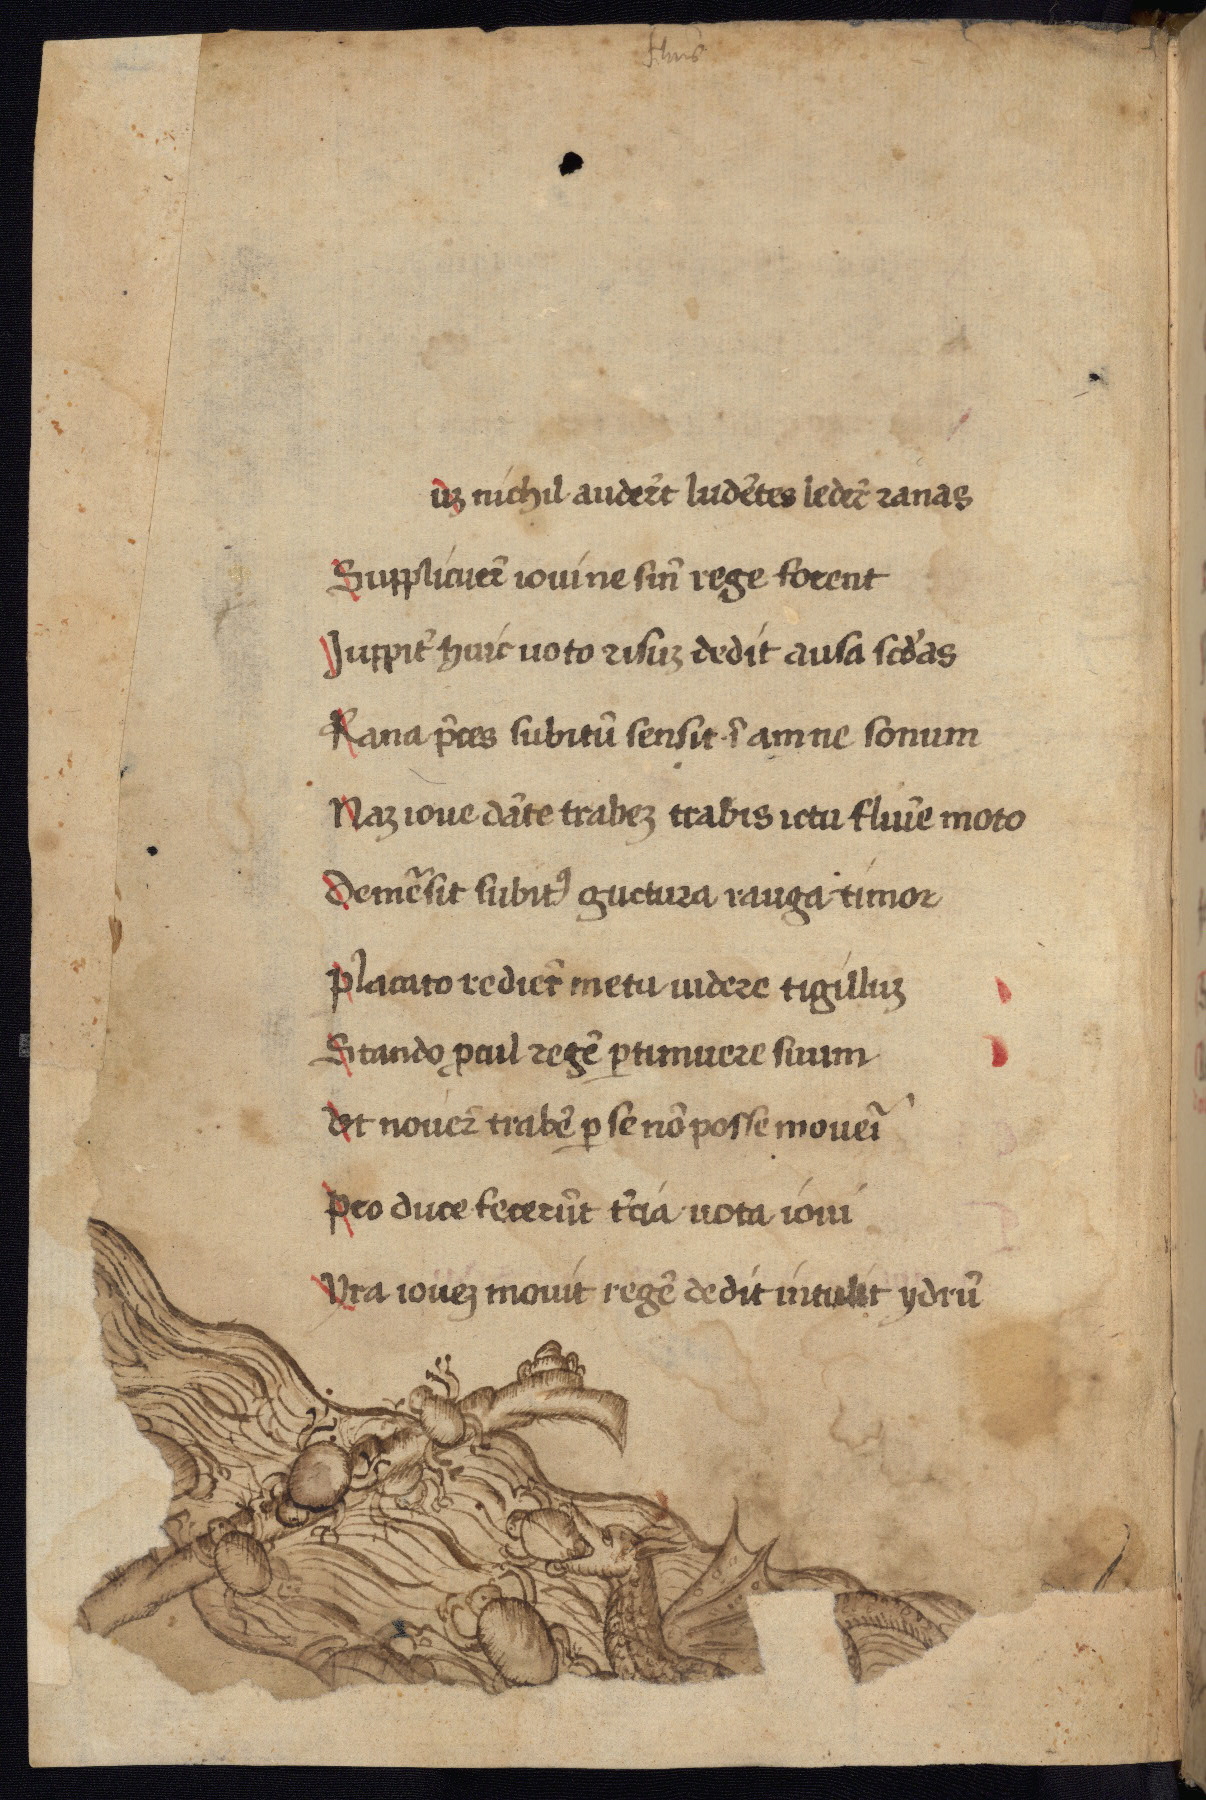 uȝ nichil auder̃t ludẽtes leder̃ ranas
Supplicuer̃ ioui ne sin̄ rege forent
Juppit̃ huic uoto risuȝ dedit ausa scd̃as
Rana p̃ces subitũ sensit ĩ amne sonum
Naȝ ioue dãte trabeȝ trabis ictu flum̃e moto
Demẽsit subitꝰ guctura rauga timor
Placato redier̃ metu uidere tigilluȝ
Stando ꝓcul regẽ ꝑtimuere suum
Et nouer̃ trabẽ ꝑ se nõ posse mouerĩ
Pro duce fecerũt t̃cia uota ioui
Yra ioueȝ mouit regẽ dedit intulit ydrũ